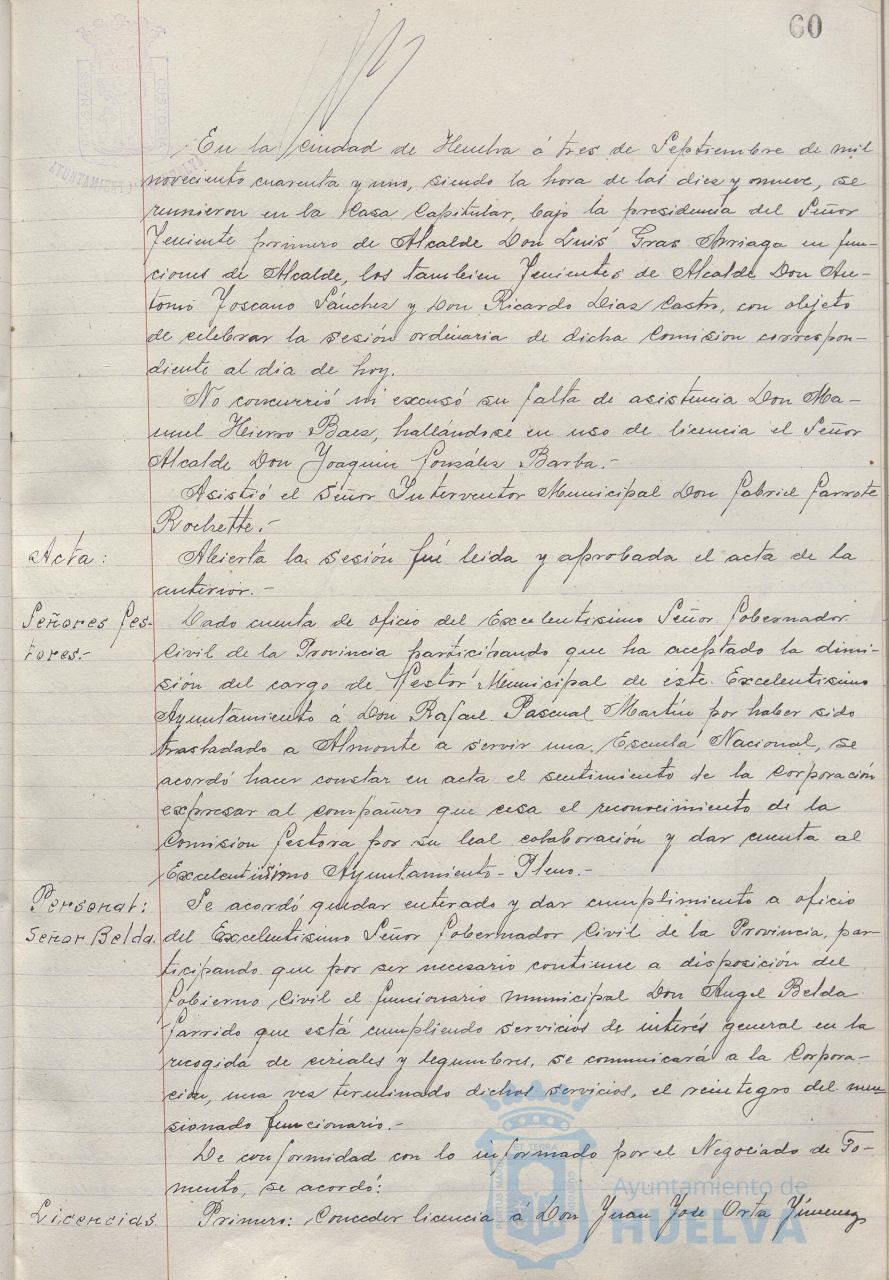 60
En la ciudad de Huelva á tres de Septiembre de mil
noveciento cuarenta y uno, siendo la hora de las diez y nueve, se
reunieron en la Casa Capitular, bajo la presidencia del Señor
Teniente primero de Alcalde Don Luis Gras Arriaga en fun-
ciones de Alcalde, los tambien Tenientes de Alcalde Don An-
tonio Toscano Sánchez y Don Ricardo Dias Castro, con objeto
de celebrar la sesión ordinaria de dicha Comision correspon-
diente al dia de hoy.
No concurrió ni excusó su falta de asistencia Don Ma-
nuel Hierro Baez, hallándose en uso de licencia el Señor
Alcalde Don Joaquin González Barba.-
Asistió el Señor Interventor Municipal Don Gabriel Garrote
Rochette.-
Acta:
Abierta la sesión fué leida y aprobada el acta de la
anterior.-
Señores Ges-
tores.-
Dado cuenta de oficio del Excelentisimo Señor Gobernador
Civil de la Provincia participando que ha aceptado la dimi-
sión del cargo de Gestor Municipal de éste Excelentisimo
Ayuntamiento á Don Rafael Pascual Martín por haber sido
trasladado a Almonte a servir una Escuela Nacional, se
acordó hacer constar en acta el sentimiento de la Corporación
expresar al compañero que cesa el reconocimiento de la
Comision Gestora por su leal colaboración y dar cuenta al
Excelentisimo Ayuntamiento-Pleno.-
Personal:
Señor Belda.
Se acordó quedar enterado y dar cumplimiento a oficio
del Excelentisimo Señor Gobernador Civil de la Provincia, par-
ticipando que por ser necesario continue a disposición del
Gobierno Civil el funcionario municipal Don Angel Belda
Garrido que está cumpliendo servicios de interés general en la
recogida de cereales y legumbres, se comunicará a la Corpora-
ción, una vez terminado dichos servicios, el reintegro del men-
sionado funcionario.-
De conformidad con lo informado por el Negociado de Fo-
mento, se acordó:
Licencias
Primero: Conceder licencia á Don Juan Jose Orta Jimenez
Ayuntamiento de
HUELVA